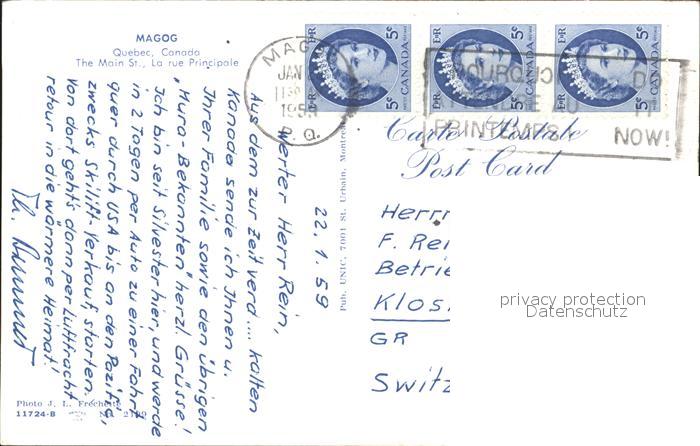 MAGOG
Quebec, Canada
The Main St., La rue Principale
22.1.59
Werter Herr Rein,
Aus dem zur Zeit verd.... kalten
Kanada sende ich Ihnen u.
Ihrer Familie sowie den übrigen
"Mura-Bekannten" herzl. Grüsse!
Ich bin seit Silvester hier, und werde
in 2 Tagen per Auto zu einer Fahrt
quer durch USA bis an den Pazific,
zwecks Skilift-Verkauf, starten.
Von dort geht's dann per Luftfracht
retour in die wärmere Heimat!
Photo J. L. Frechette
11724-B
Pub. UNIC, 7001 St. Urbain, Montreal
MAGOG
JAN
1959
P. Q.
5c
CANADA
5c
CANADA
5c
CANADA
NOW!
Carte Postale
Post Card
Herrn
F. Rei
Betrie
Klos
GR
Switz
privacy protection
Datenschutz